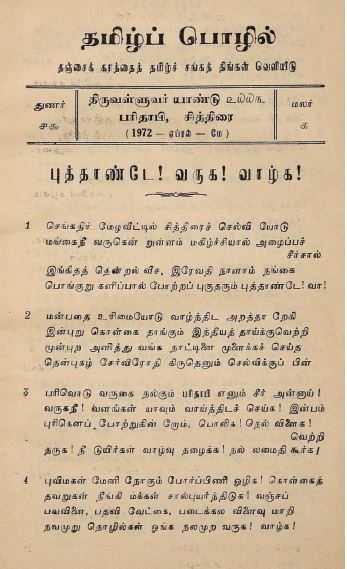 தமிழ்ப் பொழில்
தஞ்சைக் கரத்தைத் தமிழ்ச் சங்கத் திங்கள் வெளியீடு
துணர்
௪௮
திருவள்ளுவர் யாண்டு ௨௰௨௩
பரிதாபி, சித்திரை
(1972 — ஏப்ரல் — மே)
மலர்
௧
புத்தாண்டே! வருக! வாழ்க!
1 செங்கதிர் மேழவீட்டில் சித்திரைச் செல்வி யோடு
மங்கைநீ வருகென் றுள்ளம் மகிழ்ச்சியால் அழைப்பச்
சீர்சால்
இங்கிதத் தென்றல் வீச, இரேவதி நாளாம் நங்கை
பொங்குறு களிப்பால் போற்றப் புகுதரும் புத்தாண்டே! வா!
2 மன்பதை உரிமையோடு வாழ்ந்திட அறத்தா றேகி
இன்புறு கொள்கை தாங்கும் இந்தியத் தாய்க்குவெற்றி
முன்புற அளித்து வங்க நாட்டினை முளைக்கச் செய்த
தென்புகழ் சேர்விரோதி கிருதெனும் செல்விக்குப் பின்
3 பரிவொடு வருகை நல்கும் பரிதாபி எனும் சீர் அன்னாய்!
வருகநீ! வளங்கள் யாவும் வாய்த்திடச் செய்க! இன்பம்
புரிகெனப் போற்றுகின் றோம். பொலிக! நெல் விளைக!
வெற்றி
தருக! நீ டுயிர்கள் வாழ்வு தழைக்க! நல் லமைதி கூர்க!
4 புவிமகள் மேனி நோகும் போர்ப்பிணி ஒழிக! கொள்கைத்
தவறுகள் நீங்கி மக்கள் சால்புயர்ந்திடுக! வஞ்சப்
பலவினை, பதவி வேட்கை, படைக்கல விளைவு மாறி
நவமுறு தொழில்கள் ஓங்க நலமுற வருக! வாழ்க!